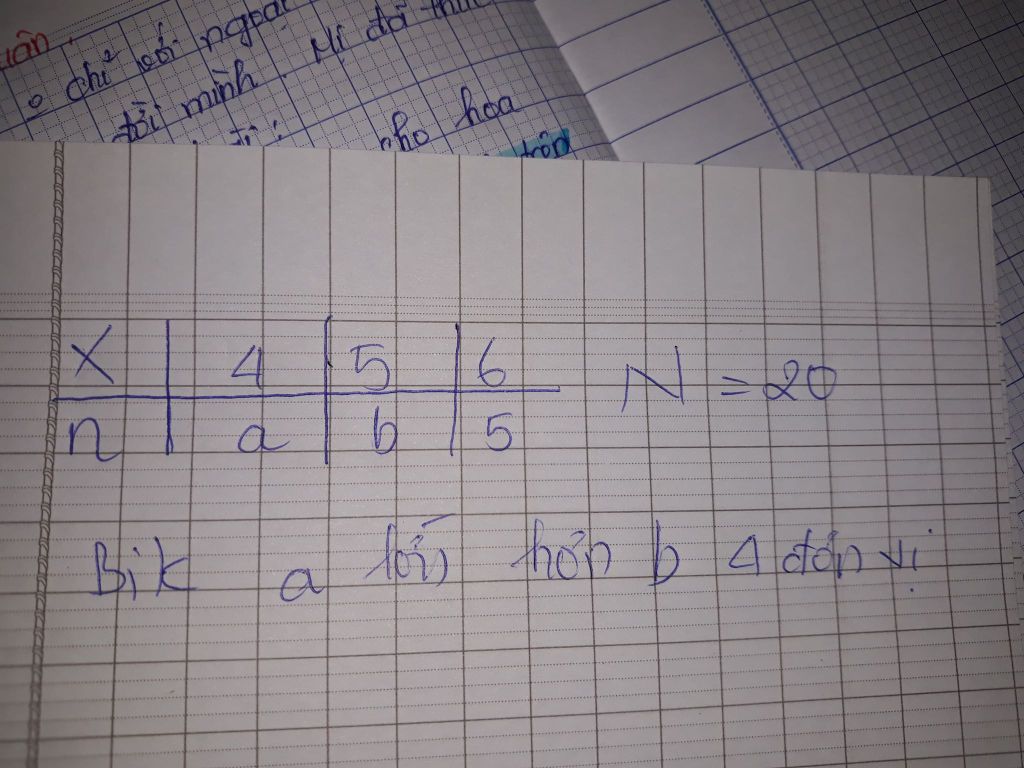 uân
chỉ với ngoại
đồi mình. Mị đã
cho hoa
X | 4 | 5 | 6 N = 20
n | a | b | 5
Bik a lớn hơn b 4 đơn vị